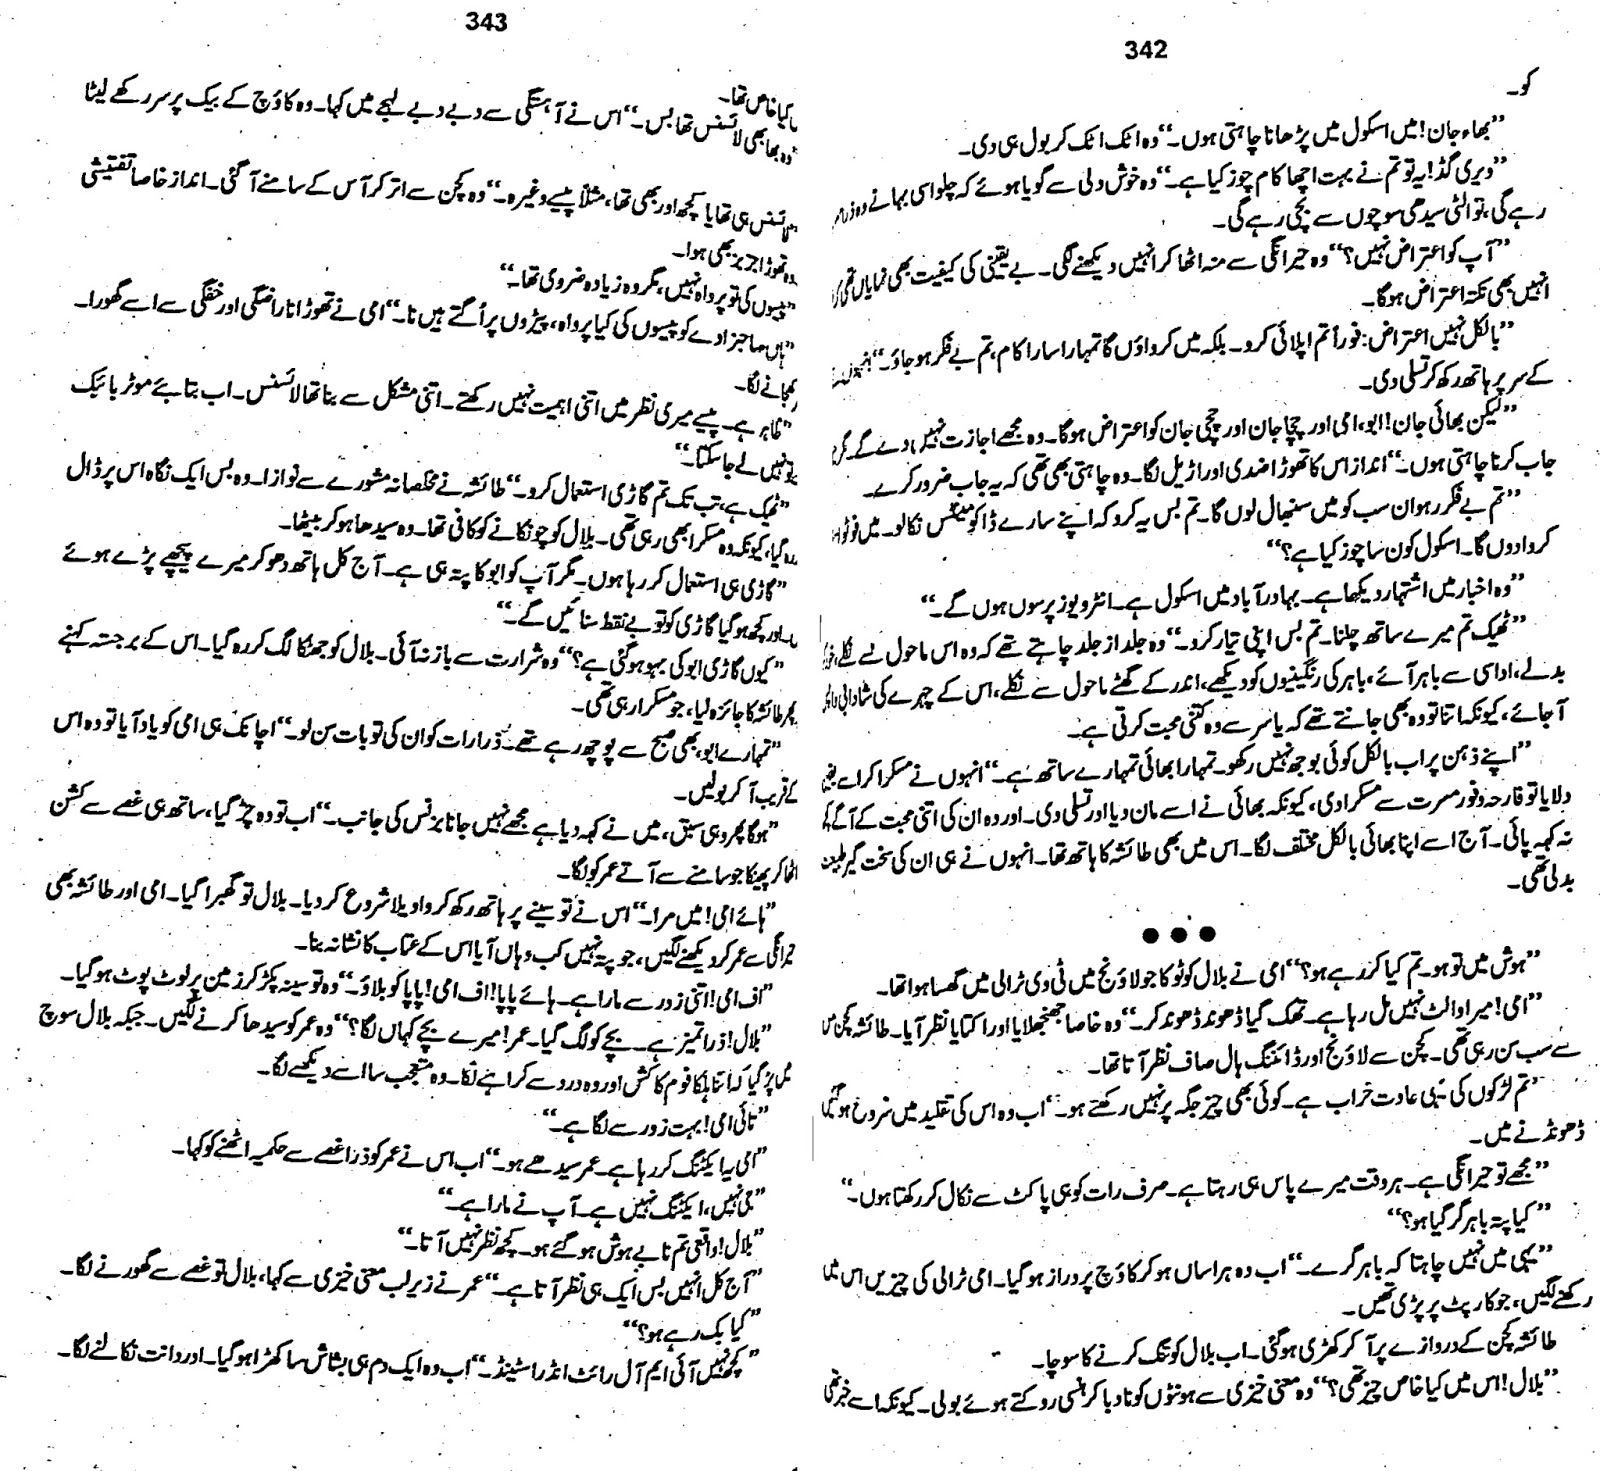 342
کو۔
”بھاء جان! میں اسکول میں پڑھانا چاہتی ہوں۔“ وہ اٹک اٹک کر بول ہی دی۔
”ویری گڈ! یہ تو تم نے بہت اچھا کام چوز کیا ہے۔“ وہ خوش دلی سے گویا ہوئے کہ چلو اسی بہانے وہ
رہے گی، تو الٹی سیدھی سوچوں سے بچی رہے گی۔
”آپ کو اعتراض نہیں؟“ وہ حیرانگی سے منہ اٹھا کر انہیں دیکھنے لگی۔ بے یقینی کی کیفیت بھی نمایاں تھی
انہیں بھی نکتہ اعتراض ہوگا۔
”بالکل نہیں اعتراض: فوراً تم اپلائی کرو۔ بلکہ میں کرواؤں گا تمہارا سارا کام، تم بے فکر ہو جاؤ۔“
کے سر پر ہاتھ رکھ کر تسلی دی۔
”لیکن بھائی جان! ابو، امی اور چچا جان اور چچی جان کو اعتراض ہوگا۔ وہ مجھے اجازت نہیں دے گے۔
جاب کرنا چاہتی ہوں۔“ انداز اس کا تھوڑا ضدی اور اڑیل لگا۔ وہ چاہتی بھی تھی کہ یہ جاب ضرور کرے۔
”تم بے فکر رہو ان سب کو میں سنبھال لوں گا۔ تم بس یہ کرو کہ اپنے سارے ڈاکومینٹس نکالو۔ میں فوٹو
کروا دوں گا۔ اسکول کون سا چوز کیا ہے؟“
”وہ اخبار میں اشتہار دیکھا ہے۔ بہادر آباد میں اسکول ہے۔ انٹرویوز پرسوں ہوں گے۔“
”ٹھیک تم میرے ساتھ چلنا۔ تم بس اپنی تیار کرو۔“ وہ جلد از جلد چاہتے تھے کہ وہ اس ماحول سے نکلے،
بدلے، اداسی سے باہر آئے، باہر کی رنگینیوں کو دیکھے، اندر کے گھٹے ماحول سے نکلے، اس کے چہرے کی شادابی
آ جائے، کیونکہ اتنا تو وہ بھی جانتے تھے کہ یاسر سے وہ کتنی محبت کرتی ہے۔
”اپنے ذہن پر اب بالکل کوئی بوجھ نہیں رکھو۔ تمہارا بھائی تمہارے ساتھ ہے۔“ انہوں نے مسکرا کر اسے
دلایا تو فارحہ وفور مسرت سے مسکرا دی، کیونکہ بھائی نے اسے مان دیا اور تسلی دی۔ اور وہ ان کی اتنی محبت کے آگے
نہ کہہ پائی۔ آج اسے اپنا بھائی بالکل مختلف لگا۔ اس میں بھی طائشہ کا ہاتھ تھا۔ انہوں نے ہی ان کی سخت گیر
بدلی تھی۔
●●●
”ہوش میں تو ہو۔ تم کیا کر رہے ہو؟“ امی نے بلال کو ٹوکا جو لاؤنج میں ٹی وی ٹرالی میں گھسا ہوا تھا۔
”امی! میرا والٹ نہیں مل رہا ہے۔ تھک گیا ڈھونڈ ڈھونڈ کر۔“ وہ خاصا جھنجھلایا اور اکتایا نظر آیا۔ طائشہ کچن میں
سے سب سن رہی تھی۔ کچن سے لاؤنج اور ڈائننگ ہال صاف نظر آتا تھا۔
”تم لڑکوں کی یہی عادت خراب ہے۔ کوئی بھی چیز جگہ پر نہیں رکھتے ہو۔“ اب وہ اس کی تقلید میں شروع ہو گئیں
ڈھونڈنے میں۔
”مجھے تو حیرانگی ہے۔ ہر وقت میرے پاس ہی رہتا ہے۔ صرف رات کو ہی پاکٹ سے نکال کر رکھتا ہوں۔“
”کیا پتہ باہر گر گیا ہو؟“
”یہی میں نہیں چاہتا کہ باہر گرے۔“ اب وہ ہراساں ہو کر کاؤچ پر دراز ہو گیا۔ امی ٹرالی کی چیزیں اس میں
رکھنے لگیں، جو کارپٹ پر پڑی تھیں۔
طائشہ کچن کے دروازے پر آ کر کھڑی ہو گئی۔ اب بلال کو تنگ کرنے کا سوچا۔
”بلال! اس میں کیا خاص چیز تھی؟“ وہ معنی خیزی سے ہونٹوں کو نا دبا کر ہنسی روکتے ہوئے بولی۔ کیونکہ اسے خبر تھی
343
کیا خاص تھا۔
”وہ بھابھی لائسنس تھا بس۔“ اس نے آہستگی سے دبے دبے لہجے میں کہا۔ وہ کاؤچ کے بیک پر سر رکھے لیٹا
”لائسنس ہی تھا یا کچھ اور بھی تھا، مثلاً پیسے وغیرہ۔“ وہ کچن سے اتر کر اس کے سامنے آ گئی۔ انداز خاصا تفتیشی
وہ تھوڑا جزبز بھی ہوا۔
”پیسوں کی تو پرواہ نہیں، مگر وہ زیادہ ضروری تھا۔“
”ہاں صاحبزادے کو پیسوں کی کیا پرواہ، پیڑوں پر اُگتے ہیں نا۔“ امی نے تھوڑا ناراضگی اور خفگی سے اسے گھورا۔
کھجانے لگا۔
”ظاہر ہے۔ پیسے میری نظر میں اتنی اہمیت نہیں رکھتے۔ اتنی مشکل سے بنا تھا لائسنس۔ اب بتایئے موٹر بائیک
تو نہیں لے جا سکتا۔“
”ٹھیک ہے، تب تک تم گاڑی استعمال کرو۔“ طائشہ نے مخلصانہ مشورے سے نوازا۔ وہ بس ایک نگاہ اس پر ڈال
رہ گیا، کیونکہ وہ مسکرا بھی رہی تھی۔ بلال کو چونکانے کو کافی تھا۔ وہ سیدھا ہو کر بیٹھا۔
”گاڑی ہی استعمال کر رہا ہوں۔ مگر آپ کو ابو کا پتہ ہی ہے۔ آج کل ہاتھ دھو کر میرے پیچھے پڑے ہوئے
اور کچھ ہو گیا گاڑی کو تو بے نقط سنائیں گے۔“
”کیوں گاڑی ابو کی بہو ہو گئی ہے؟“ وہ شرارت سے باز نہ آئی۔ بلال کو جھٹکا لگ کر رہ گیا۔ اس کے برجستہ کہنے
پھر طائشہ کا جائزہ لیا، جو مسکرا رہی تھی۔
”تمہارے ابو، بھی صبح سے پوچھ رہے تھے۔ ذرا رات کو ان کی تو بات سن لو۔“ اچانک ہی امی کو یاد آیا تو وہ اس
کے قریب آ کر بولیں۔
”ہوگا پھر وہی سبق، میں نے کہہ دیا ہے مجھے نہیں جانا بزنس کی جانب۔“ اب تو وہ چڑ گیا، ساتھ ہی غصے سے کشن
اٹھا کر پھینکا جو سامنے سے آتے عمر کو لگا۔
”ہائے امی! میں مرا۔“ اس نے تو سینے پر ہاتھ رکھ کر واویلا شروع کر دیا۔ بلال تو گھبرا گیا۔ امی اور طائشہ بھی
حیرانگی سے عمر کر دیکھنے لگیں، جو پتہ نہیں کب وہاں آیا اس کے عتاب کا نشانہ بنا۔
”اف امی! اتنی زور سے مارا ہے۔ ہائے پاپا! اف امی! پاپا کو بلاؤ۔“ وہ تو سینہ پکڑ کر زمین پر لوٹ پوٹ ہو گیا۔
”بلال! ذرا تمیز ہے۔ بچے کو لگ گیا۔ عمر! میرے بچے کہاں لگا؟“ وہ عمر کو سیدھا کرنے لگیں۔ جبکہ بلال سوچ
میں پڑ گیا کہ اتنا ہلکا فوم کا کشن اور وہ درد سے کراہنے لگا۔ وہ متعجب سا اسے دیکھنے لگا۔
”تائی امی! بہت زور سے لگا ہے۔“
”امی یہ ایکٹنگ کر رہا ہے۔ عمر سیدھے ہو۔“ اب اس نے عمر کو ذرا غصے سے حکمیہ اٹھنے کو کہا۔
”جی نہیں، ایکٹنگ نہیں ہے۔ آپ نے مارا ہے۔“
”بلال! واقعی تم نا بے ہوش ہو گئے ہو۔ کچھ نظر نہیں آتا۔“
”آج کل انہیں بس ایک ہی نظر آتا ہے۔“ عمر نے زیر لب معنی خیزی سے کہا، بلال تو غصے سے گھورنے لگا۔
”کیا بک رہے ہو؟“
”کچھ نہیں آئی ایم آل رائٹ انڈر اسٹینڈ۔“ اب وہ ایک دم ہی بشاش سا کھڑا ہو گیا۔ اور دانت نکالنے لگا۔